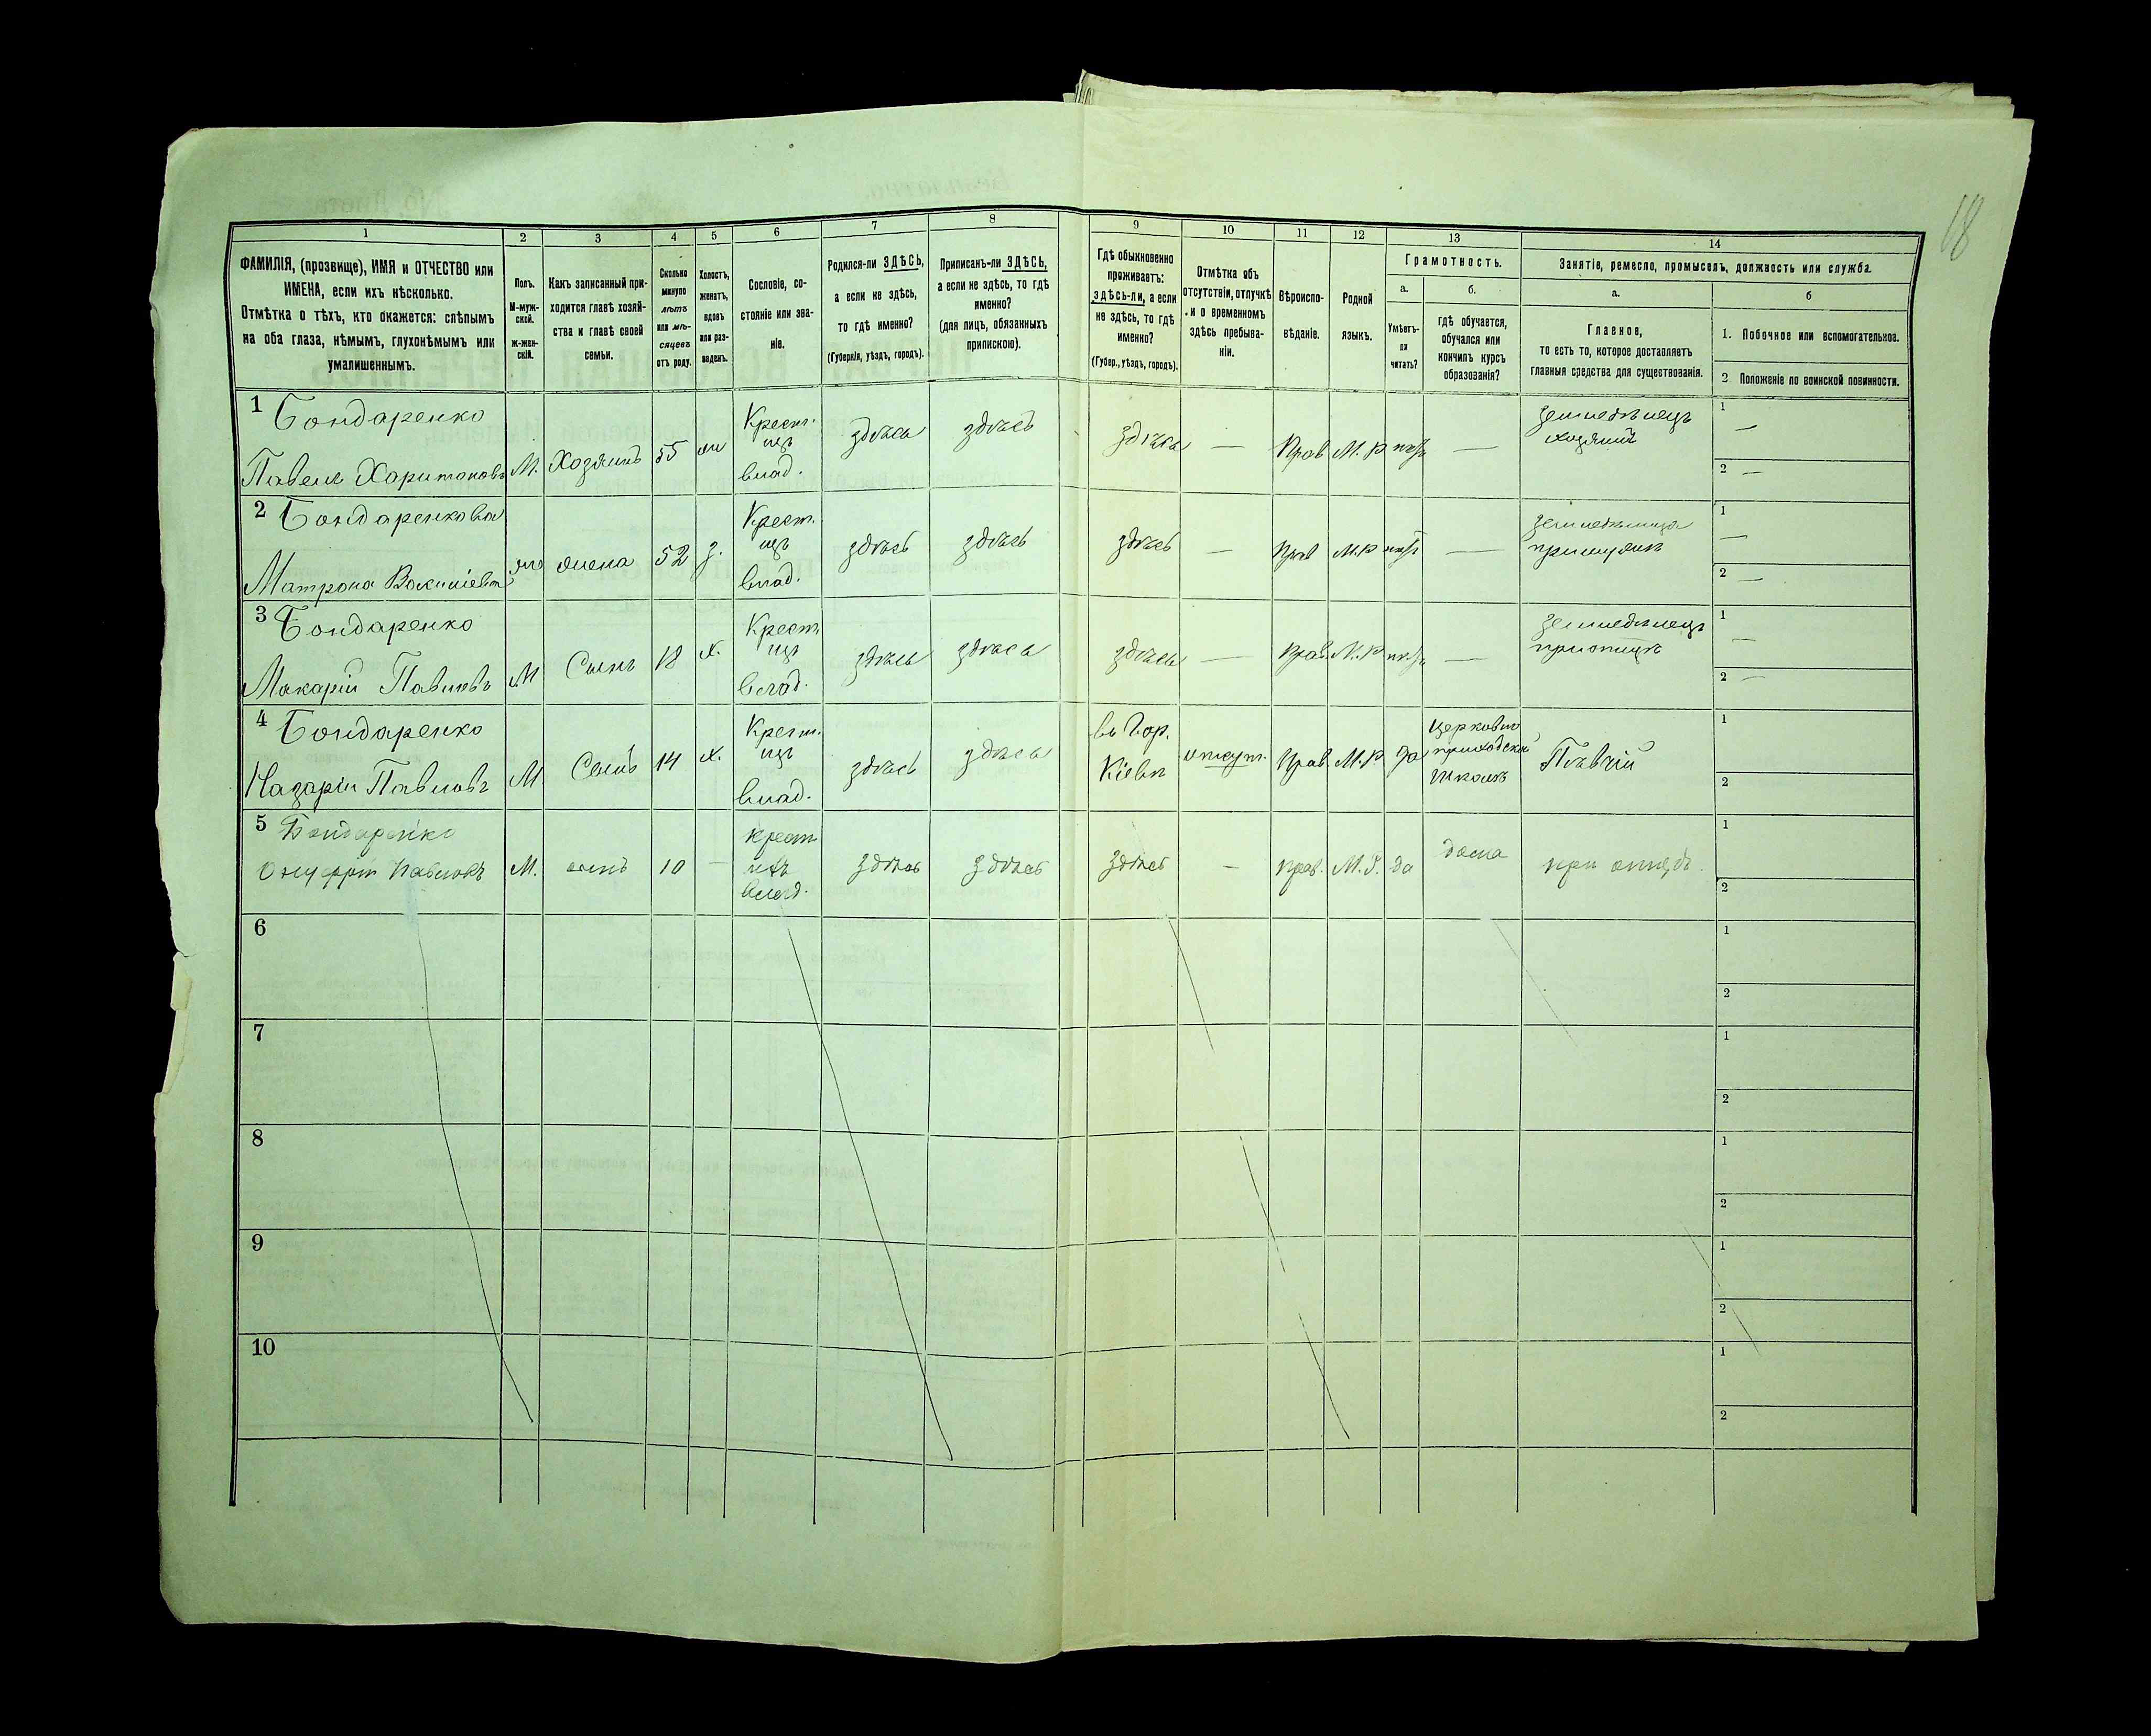 18
1 2 3 4 5 6 7 8 9 10 11 12 13 14
ФАМИЛІЯ, (прозвище), ИМЯ и ОТЧЕСТВО или
ИМЕНА, если ихъ нѣсколько.
Отмѣтка о тѣхъ, кто окажется: слѣпымъ
на оба глаза, нѣмымъ, глухонѣмымъ или
умалишеннымъ.
Полъ.
М-муж-
ской.
ж-жен-
скій.
Какъ записанный при-
ходится главѣ хозяй-
ства и главѣ своей
семьи.
Сколько
минуло
лѣтъ
или мѣ-
сяцевъ
отъ роду.
Холостъ,
женатъ,
вдовъ
или раз-
веденъ.
Сословіе, со-
стояніе или зва-
ніе.
Родился-ли ЗДѢСЬ,
а если не здѣсь,
то гдѣ именно?
(Губернія, уѣздъ, городъ).
Приписанъ-ли ЗДѢСЬ,
а если не здѣсь, то гдѣ
именно?
(для лицъ, обязанныхъ
припискою).
Гдѣ обыкновенно
проживаетъ:
здѣсь-ли, а если
не здѣсь, то гдѣ
именно?
(Губер., уѣздъ, городъ).
Отмѣтка объ
отсутствіи, отлучкѣ
и о временномъ
здѣсь пребыва-
ніи.
Вѣроиспо-
вѣданіе.
Родной
языкъ.
Грамотность.
а.
Умѣетъ-
ли
читать?
б.
гдѣ обучается,
обучался или
кончилъ курсъ
образованія?
Занятіе, ремесло, промыселъ, должность или служба.
а.
Главное,
то есть то, которое доставляетъ
главныя средства для существованія.
б
1. Побочное или вспомогательное.
2 Положеніе по воинской повинности.
1 Бондаренко
Павелъ Харитоновъ
М.
Хозяинъ
55
Крест.
изъ
влад.
здѣсь
здѣсь
здѣсь
—
Прав
М. Р
—
земледѣлецъ
хозяинъ
1 —
2 —
2 Бондаренкова
Матрона
жена
52
Крест.
изъ
влад.
здѣсь
здѣсь
здѣсь
—
Прав
М. Р
—
1 —
2 —
3 Бондаренко
Макарій Павловъ
М
Сынъ
18
х.
Крест.
изъ
влад.
здѣсь
здѣсь
здѣсь
—
Прав.
М. Р
—
земледѣлецъ
1 —
2 —
4 Бондаренко
Назарій Павловъ
М
Сынъ
14
х.
Крест.
изъ
влад.
здѣсь
здѣсь
въ Гор.
Кіевѣ
отсут.
Прав.
М. Р.
да
церковно
приходской
школѣ
Пѣвчій
1
2
5 Бондаренко
Онуфрій Павловъ
М.
сынъ
10
—
крест
изъ
влад.
здѣсь
здѣсь
здѣсь
—
прав.
М. Р.
да
дома
при отцѣ
1
2
6
1
2
7
1
2
8
1
2
9
1
2
10
1
2